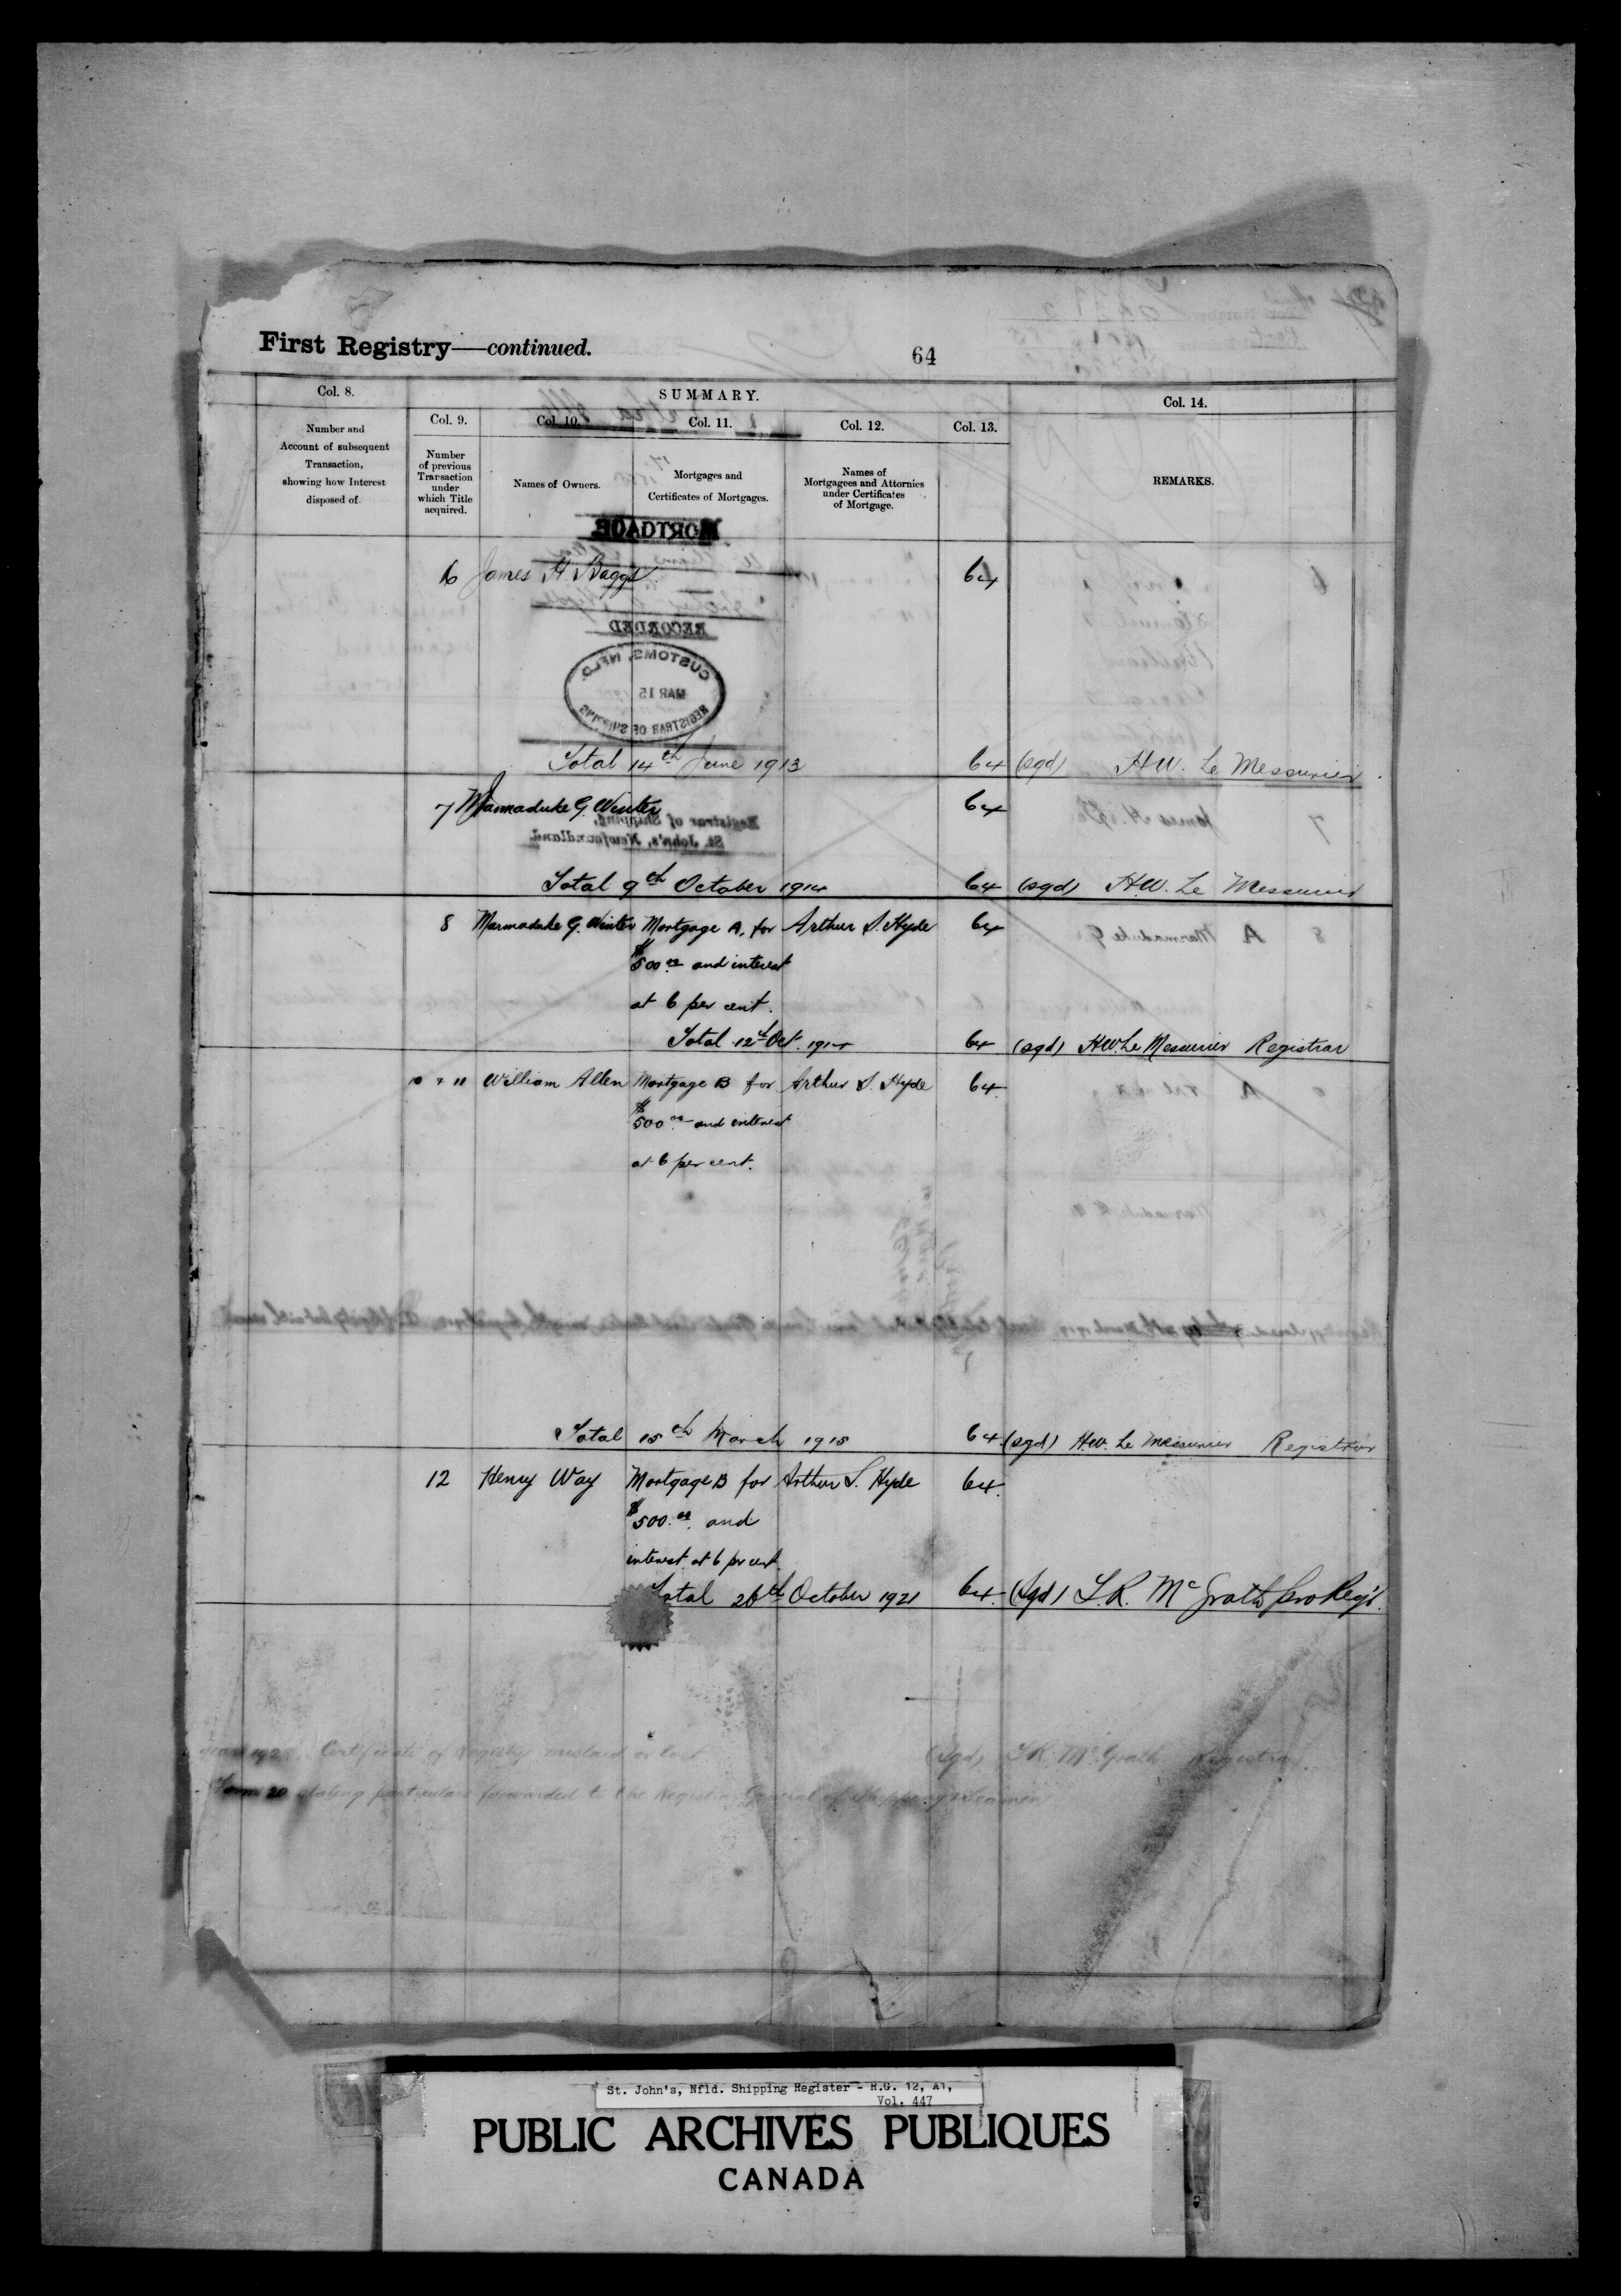 First Registry—continued.
64
Col. 8.
SUMMARY.
Col. 14.
Col. 9.
Col. 10.
Col. 11.
Col. 12.
Col. 13.
Number and
Account of subsequent
Transaction,
showing how Interest
disposed of.
Number
of previous
Transaction
under
which Title
acquired.
Names of Owners.
Mortgages and
Certificates of Mortgages.
Names of
Mortgagees and Attornies
under Certificates
of Mortgage.
REMARKS.
MORTGAGE
6 James H. Baggs 64
RECORDED
CUSTOMS, NFLD.
MAR 15
REGISTRAR OF SHIPPING
Total 14th June 1913 64 (sgd) H.W. Le Messurier
7 Marmaduke G. Winter 64
Registrar of Shipping,
St. John's, Newfoundland.
Total 9th October 1914 64 (sgd) H.W. Le Messurier
8 Marmaduke G. Winter Mortgage A. for Arthur S. Hyde 64
$500.00 and interest
at 6 per cent.
Total 12th Oct. 1914 64 (sgd) H.W. Le Messurier Registrar
10 & 11 William Allen Mortgage B for Arthur S. Hyde 64
$500.00 and interest
at 6 per cent.
Total 15th March 1915 64 (sgd) H.W. Le Messurier Registrar
12 Henry Way Mortgage B for Arthur S. Hyde 64
$500.00 and
interest at 6 pr cent.
Total 26th October 1921 64 (Sgd) L.R. McGrath pro Reg'r.
Certificate of Registry mislaid or lost (sgd) McGrath Registrar.
Form 20 stating particulars forwarded to the Registrar General of Shipping & Seamen
St. John's, Nfld. Shipping Register - R.G. 12, A1,
Vol. 447
PUBLIC ARCHIVES PUBLIQUES
CANADA